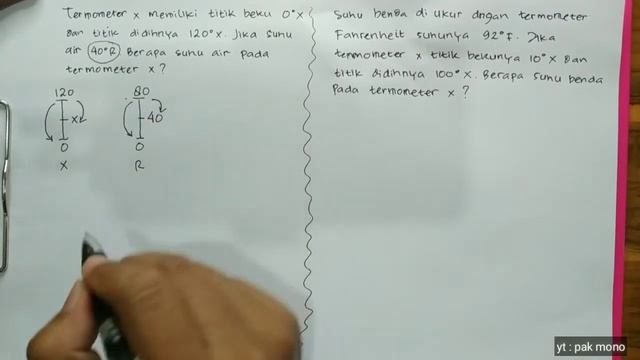 Termometer x memiliki titik beku 0°x
Dan titik didihnya 120°x. Jika suhu
air 40°R Berapa suhu air pada
termometer x ?
120
x
0
X
80
40
0
R
Suhu benda di ukur dngan termometer
Fahrenheit suhunya 92°F. Jika
termometer x titik bekunya 10°x Dan
titik didihnya 100°x. Berapa suhu benda
Pada termometer x ?
yt : pak mono